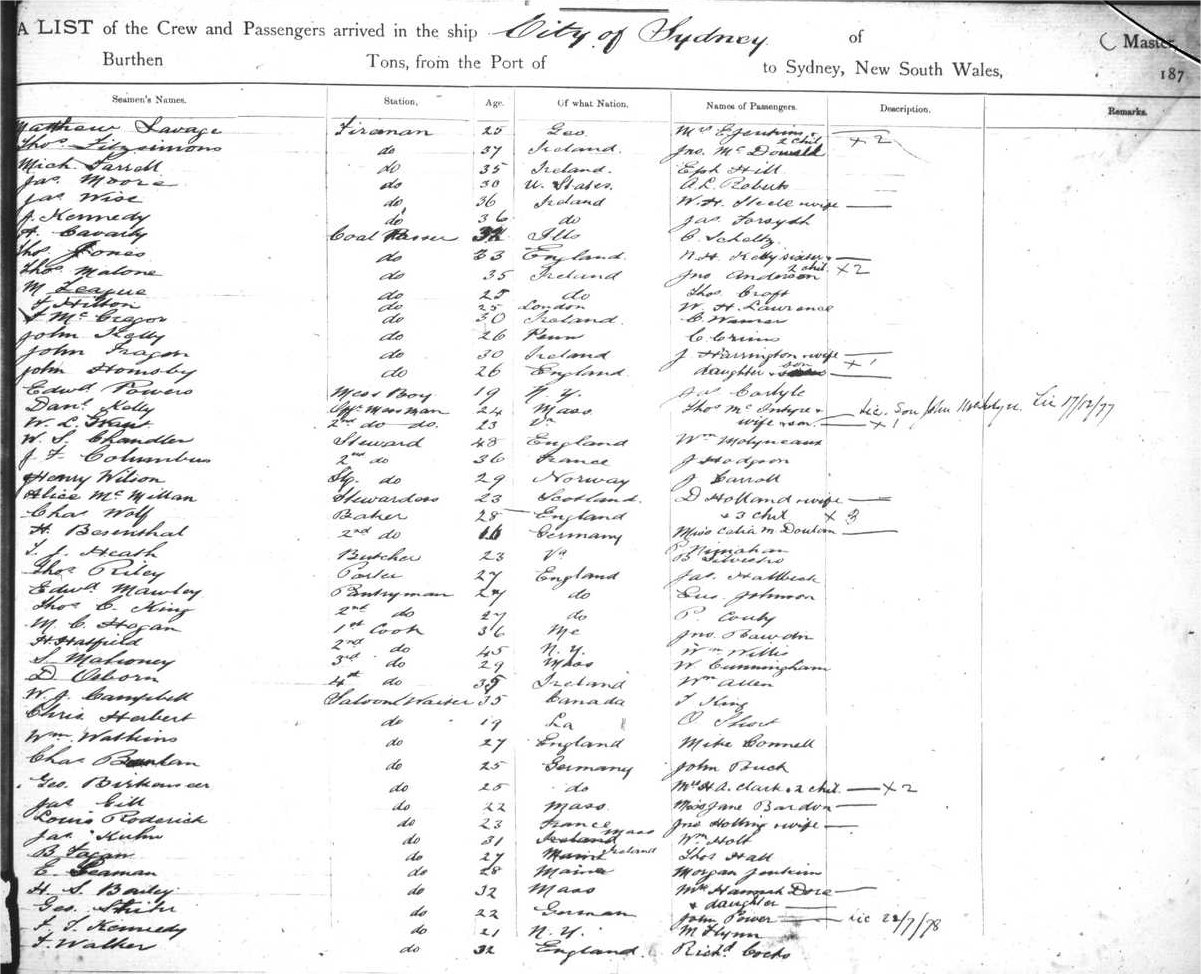 A LIST of the Crew and Passengers arrived in the ship City of Sydney of Master
Burthen Tons, from the Port of to Sydney, New South Wales, 187
Seamen's Names. Station, Age. Of what Nation. Names of Passengers. Description. Remarks.
Matthew Savage Fireman 25 Geo. Mrs E Jenkins & 2 chil x2
Thos. Fitzsimons do 37 Ireland. Jno. McDonald
Mich. Farrell do 35 Ireland. Hill
Jas Moore do 30 U. States. A.L. Roberts
Jas Wise do 36 Ireland W. H. Steele & wife
J. Kennedy do 36 do Jas Forsyth
H. Cavarty Coal Passer Ills C. Scheltz
Thos Jones do 23 England. N. H. Kelly sister &
Thos Malone do 35 Ireland Jno Anderson 2 chil. x2
M League do 25 do Thos Croft
F Hilton do 25 London W. H. Lawrence
F McGregor do 30 Ireland. C Warner
John Kelly do 26 Penn C Crims
John Fragan do 30 Ireland J Harrington & wife
John Hornsby do 26 England daughter & son x1
Edwd Powers Mess Boy 19 N.Y. Jas Carlyle
Danl Kelly Offs Messman 24 Mass. Thos McIntyre & Lic. Son John McIntyre. Lic 17/12/77
W. L. Grant 2nd do do. 23 Va wife & son. x1
W. S. Chandler Steward 48 England Wm Molyneaux
J F Columbus 2nd do 36 France J Hodgson
Henry Wilson Stg. do 29 Norway J Carroll
Alice McMillan Stewardess 23 Scotland. D Holland & wife
Chas Wolf Baker 28 England & 3 chil x 3
H. Besenthal 2nd do 16 Germany Miss Catia M Doutson
T. J. Heath Butcher 23 Va P Nemahan
B Silvestro
Thos Riley Porter 27 England Jas. Hallbeck
Edwd Mawley Pantryman 27 do Gus Johnson
Thos C. King 2nd do 27 do P. Couly
M. C. Hogan 1st Cook 36 Me Jno. Rawdon
H. Hatfield 2nd do 45 N.Y. Wm Willis
S. Mahoney 3rd do 29 Mass W Cunningham
D Osborn 4th do 35 Ireland Wm Allen
W. J. Campbell Saloon Waiter 35 Canada T King
Chris Herbert do 19 La O Short
Wm Watkins do 27 England Mike Connell
Chas do 25 Germany John Buck
Geo. do 25 do Mrs H A. Clark & 2 chil. x2
Jas Gill do 22 Mass. Miss Jane Bardon
Louis Roderick do 23 France Jno Holling & wife
Jas Kuhn do 31 Mass Wm Holt
B. Fagan do 27 Ireland Thos Hall
E. Seaman do 28 Maine Morgan Jenkins
H. S. Bailey do 32 Mass Mrs Hannah Dore
& daughter
Geo. do 22 German John Power Lic 22/7/78
J. T. Kennedy do 21 N.Y. M Flynn
F. Walker do 32 England. Richd Cocks